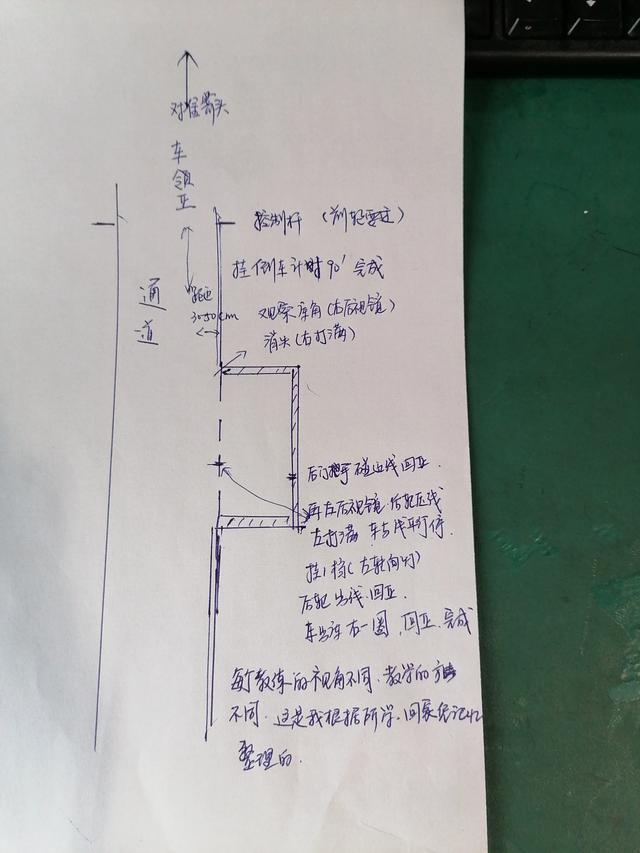 对准箭头
车领正
控制杆（前轮要过）
挂倒车计时90'完成
通道
距边
30-50cm
观察库角（右后视镜）
消失（右打满）
后门把手碰边线回正.
再左后视镜.后轮压线
左打满 车与线平行停.
挂1档（左转向灯）
后轮出线.回正.
车出库右一圈.回正.完成
每个教练的视角不同.教学的方法
不同.这是我根据所学.回家凭记忆
整理的.